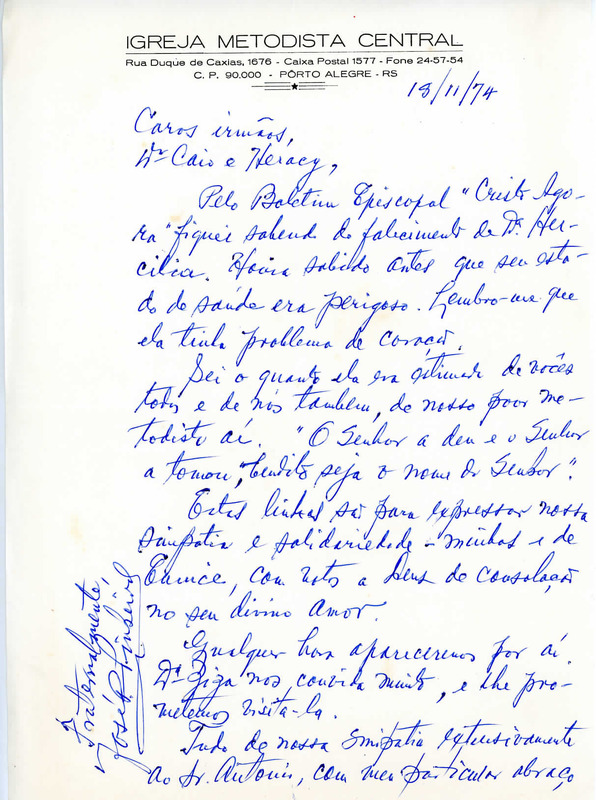 IGREJA METODISTA CENTRAL
Rua Duque de Caxias, 1676 - Caixa Postal 1577 - Fone 24-57-54
C. P. 90.000 - PÔRTO ALEGRE - RS
18/11/74
Caros irmãos,
Dr Caio e Heracy,
Pelo Boletim Episcopal "Cristo Ago-
ra" fiquei sabendo do falecimento de Da Her-
cilia. Havia sabido antes que seu esta-
do de saúde era perigoso. Lembro-me que
ela tinha problema de coração.
Sei o quanto ela era estimada de vocês
todos e de nós também, do nosso povo me-
todista aí. "O Senhor a deu e o Senhor
a tomou, bendito seja o nome do Senhor".
Estas linhas são para expressar nossa
simpatia e solidariedade - minhas e de
Eunice, com votos a Deus de consolação
no seu divino amor.
Qualquer hora apareceremos por aí.
Da Ziza nos convida muito, e lhe pro-
metemos visitá-la.
Tudo de nossa simpatia extensivamente
ao Sr. Antonio, com meu particular abraço
Fraternalmente,
José P.